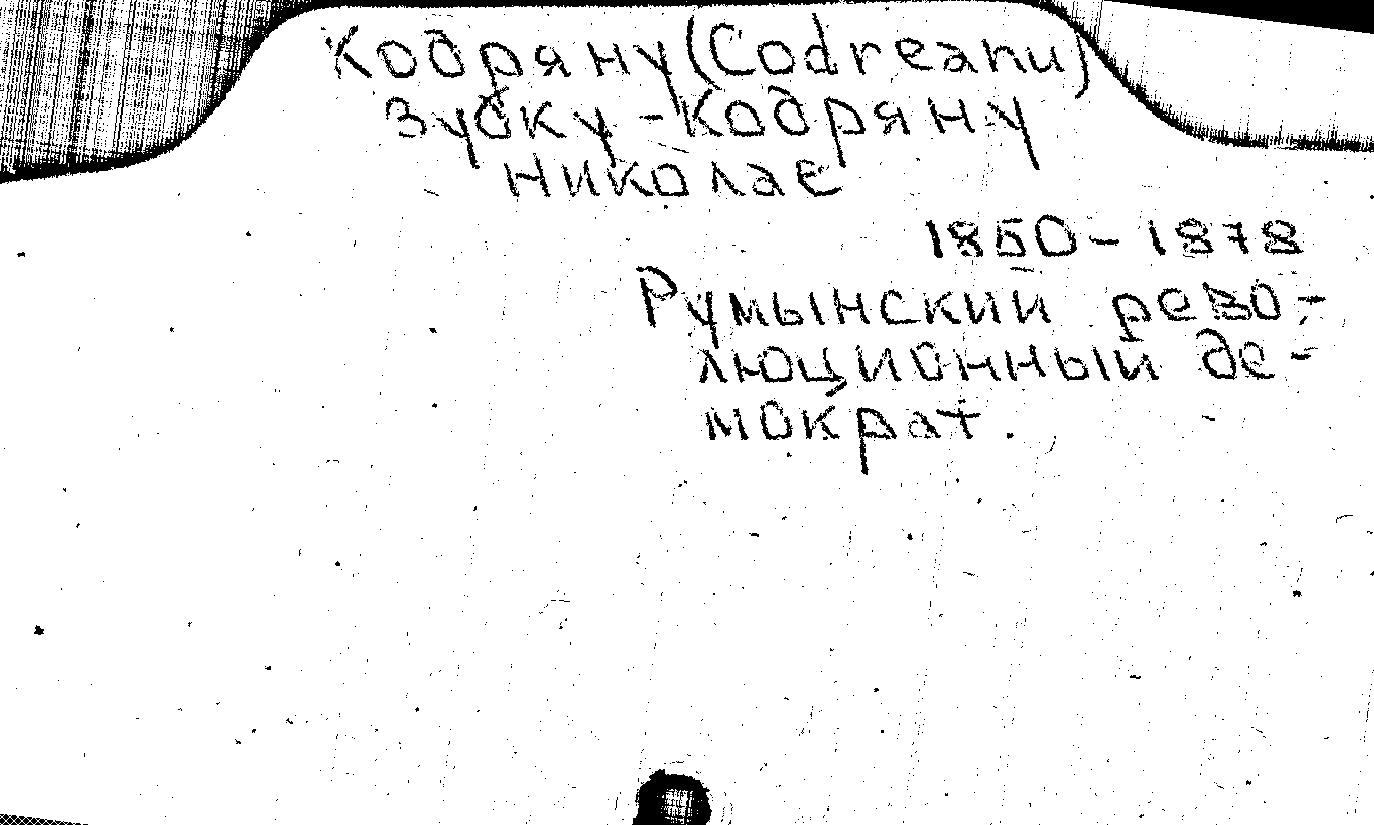 Кодряну (Codreanu)
Зубку-Кодряну
Николае
1850-1878
Румынский рево-
люционный де-
мократ.